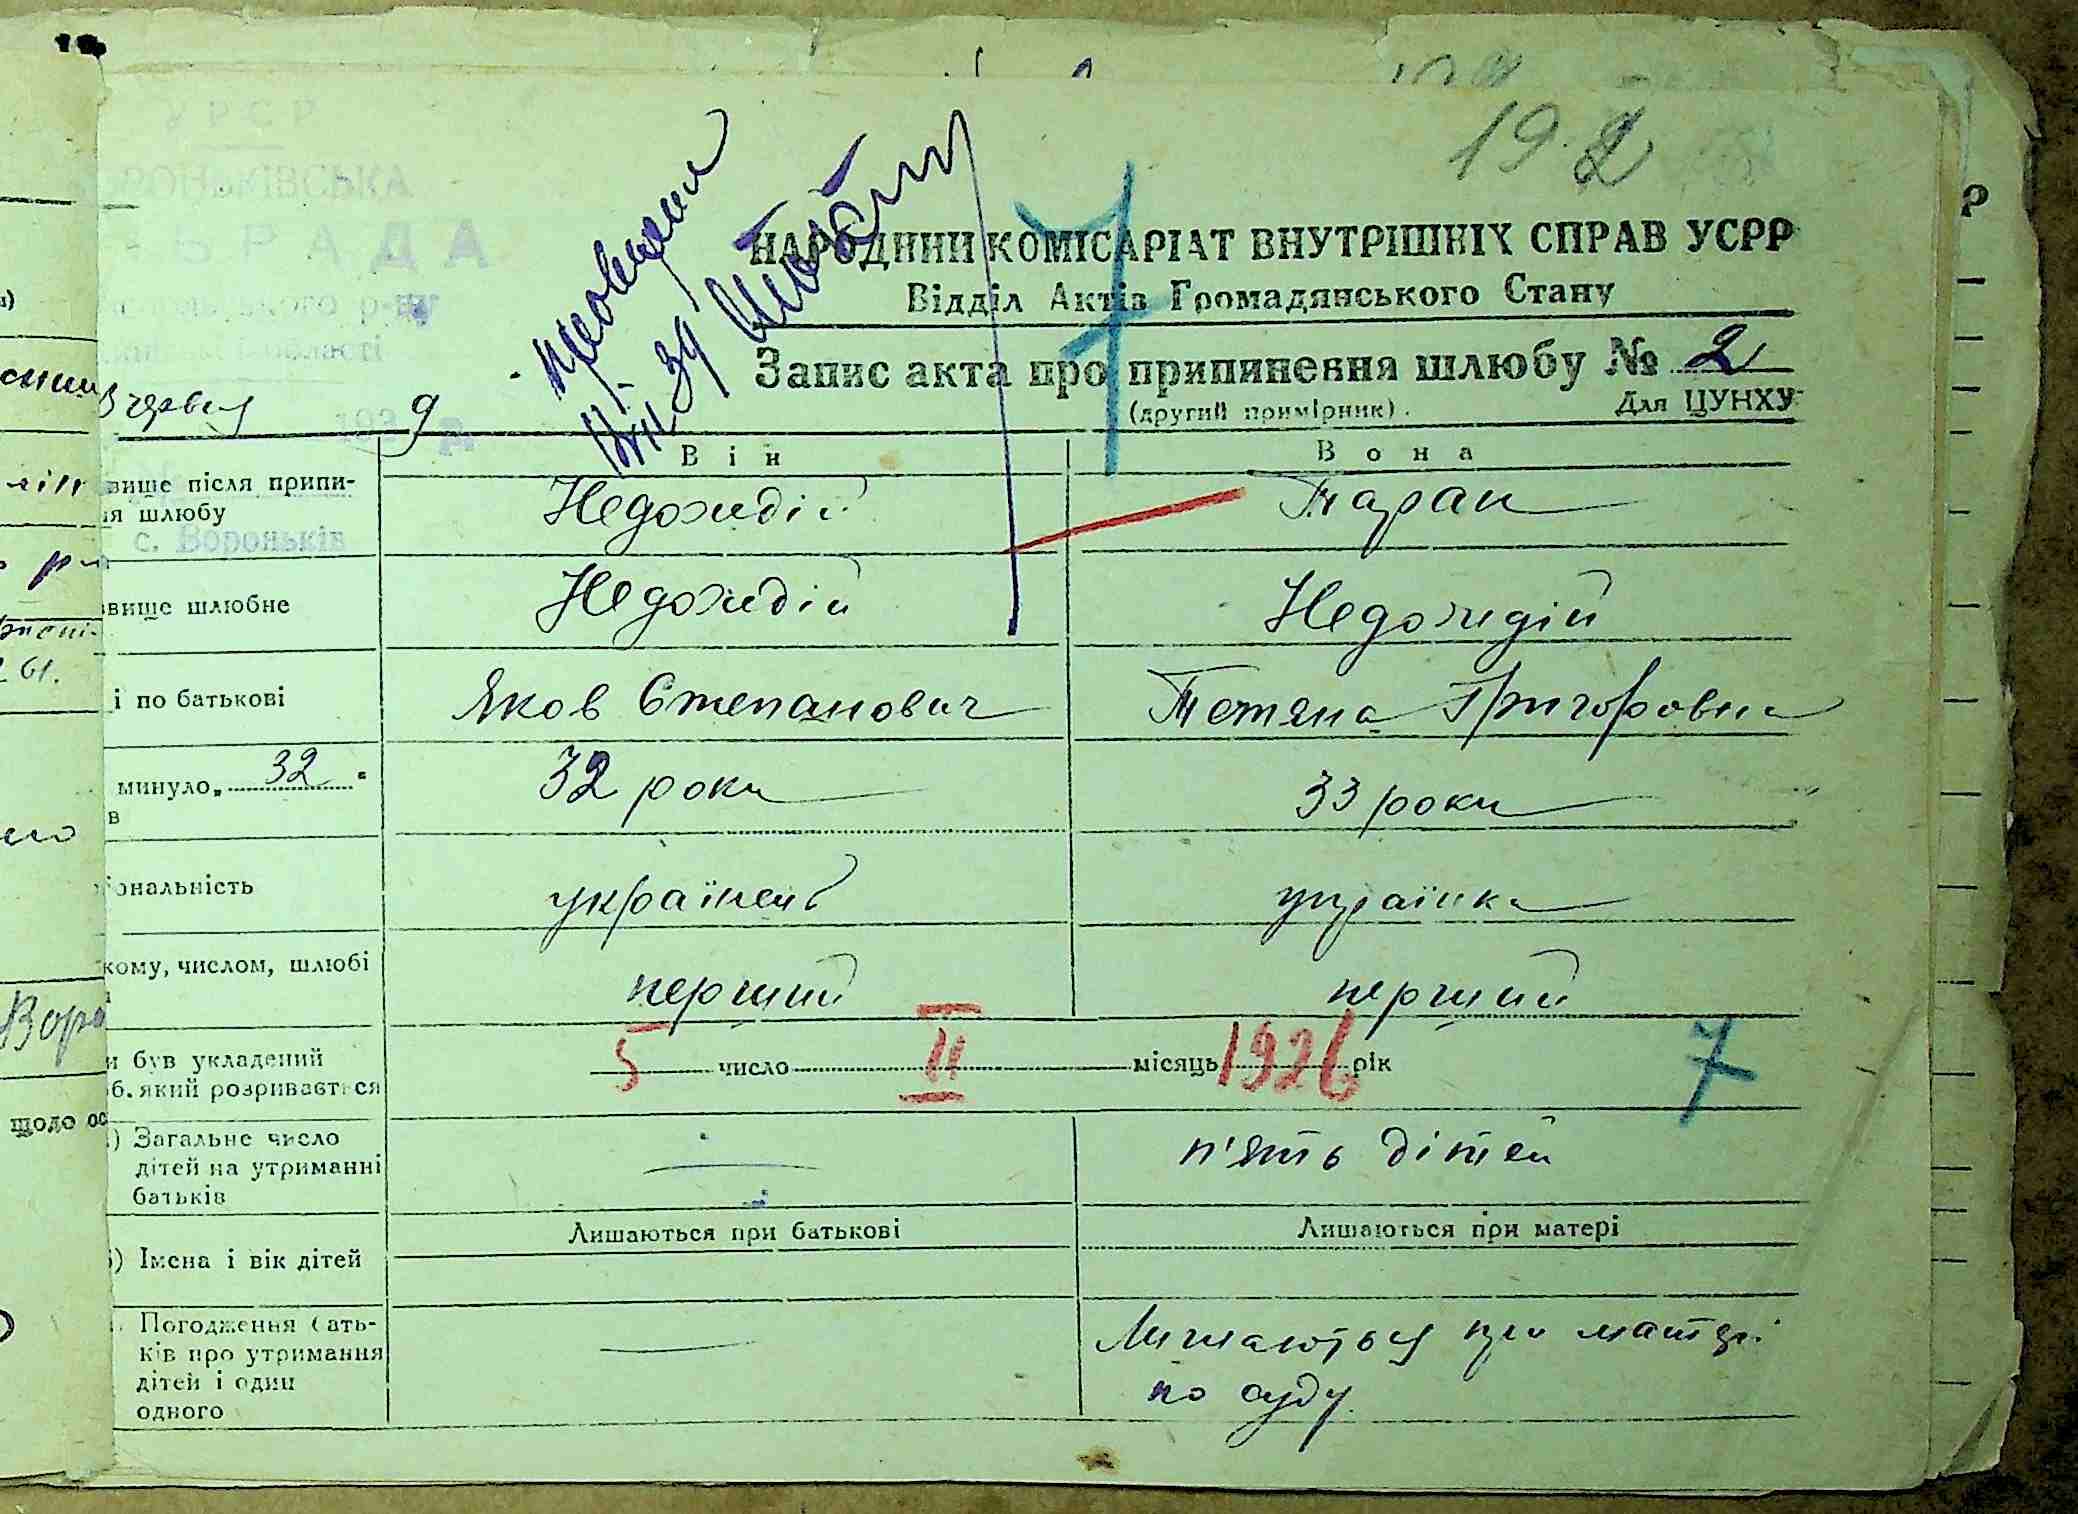 УРСР
19.2
РОНЬКІВСЬКА
РАДА
НАРОДНИЙ КОМІСАРІАТ ВНУТРІШНІХ СПРАВ УСРР
Відділ Актів Громадянського Стану
Запис акта про припинення шлюбу № 2
(другий примірник). Для ЦУНХУ
червня 193 9 р.
7
Він Вона
вище після припи-
ня шлюбу
Недождій Таран
с. Вороньків
вище шлюбне Недождій Недождій
і по батькові Яков Степанович Тетяна Григоровна
минуло 32
в
32 роки 33 роки
ональність українець українка
кому, числом, шлюбі перший перший
був укладений
б. який розривається
5 число II місяць 1926 рік 7
щодо
) Загальне число
дітей на утриманні
батьків
— п'ять дітей
Лишаються при батькові Лишаються при матері
) Імена і вік дітей
Погодження бать-
ків про утримання
дітей і один
одного
— Лишаються при матері
по суду